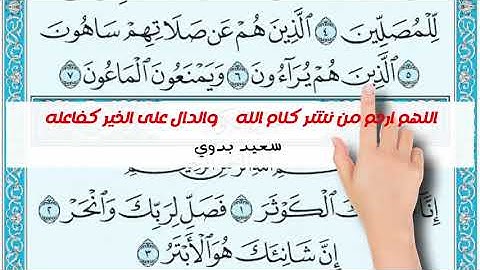 لِّلْمُصَلِّينَ ٤ ٱلَّذِينَ هُمْ عَن صَلَاتِهِمْ سَاهُونَ
٥ ٱلَّذِينَ هُمْ يُرَآءُونَ ٦ وَيَمْنَعُونَ ٱلْمَاعُونَ ٧
اللهم ارحم من نشر كلام الله والدال على الخير كفاعله
سعيد بدوي
إِنَّا ٱلْكَوْثَرَ ١ فَصَلِّ لِرَبِّكَ وَٱنْحَرْ ٢
إِنَّ شَانِئَكَ هُوَ ٱلْأَبْتَرُ ٣